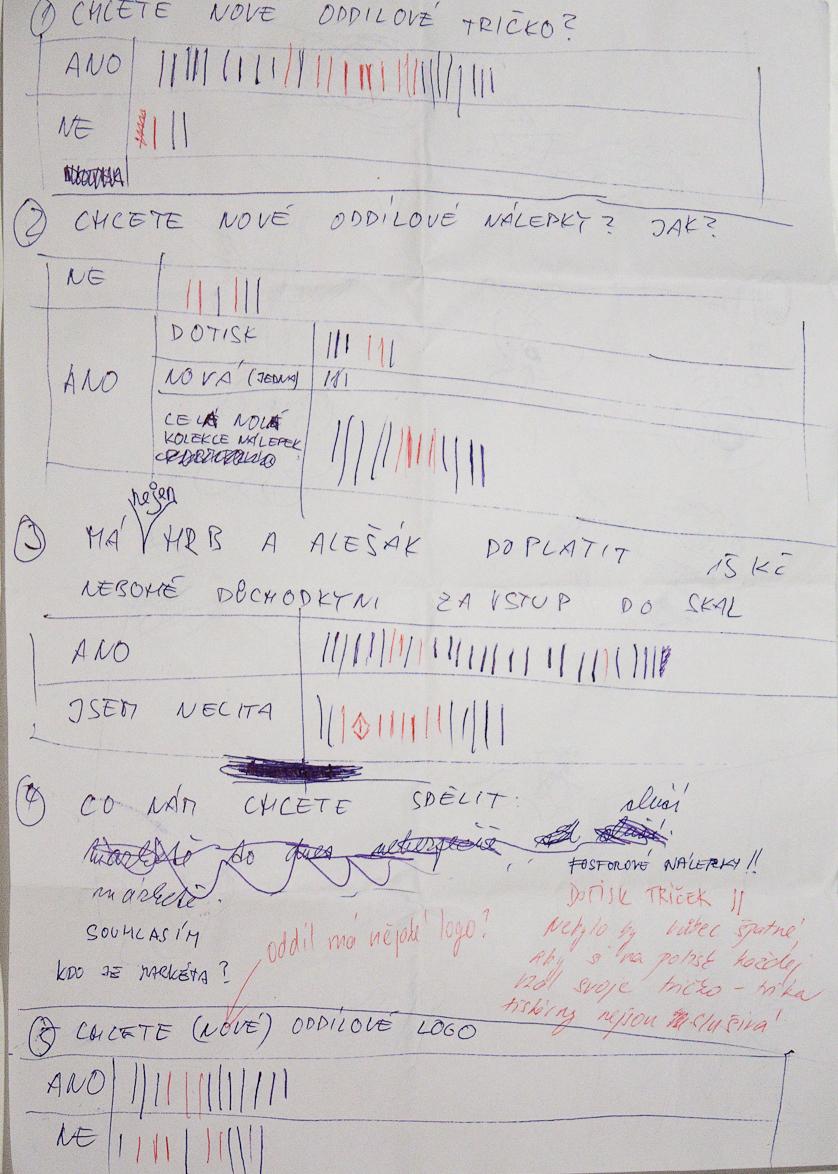 ① CHCETE NOVÉ ODDÍLOVÉ TRIČKO?
ANO
NE
② CHCETE NOVÉ ODDÍLOVÉ NÁLEPKY? JAK?
NE
ANO
DOTISK
NOVÁ (JEDNA)
CELÁ NOVÁ
KOLEKCE NÁLEPEK
③ MÁ nejen MRB A ALEŠÁK DOPLATIT 15 KČ
NEBOHÉ DŮCHODKYNI ZA VSTUP DO SKAL
ANO
JSEM NECITA
④ CO NÁM CHCETE SDĚLIT:
sluší
markétě.
FOSFOROVÉ NÁLEPKY!!
DOTISK TRIČEK !!
SOUHLASÍM
oddíl má nějaké logo?
Nebylo by vůbec špatné
aby si na potisk každej
vzal svoje tričko – trika
KDO JE MARKÉTA?
tiskárny nejsou slušivá
⑤ CHCETE (NOVÉ) ODDÍLOVÉ LOGO
ANO
NE